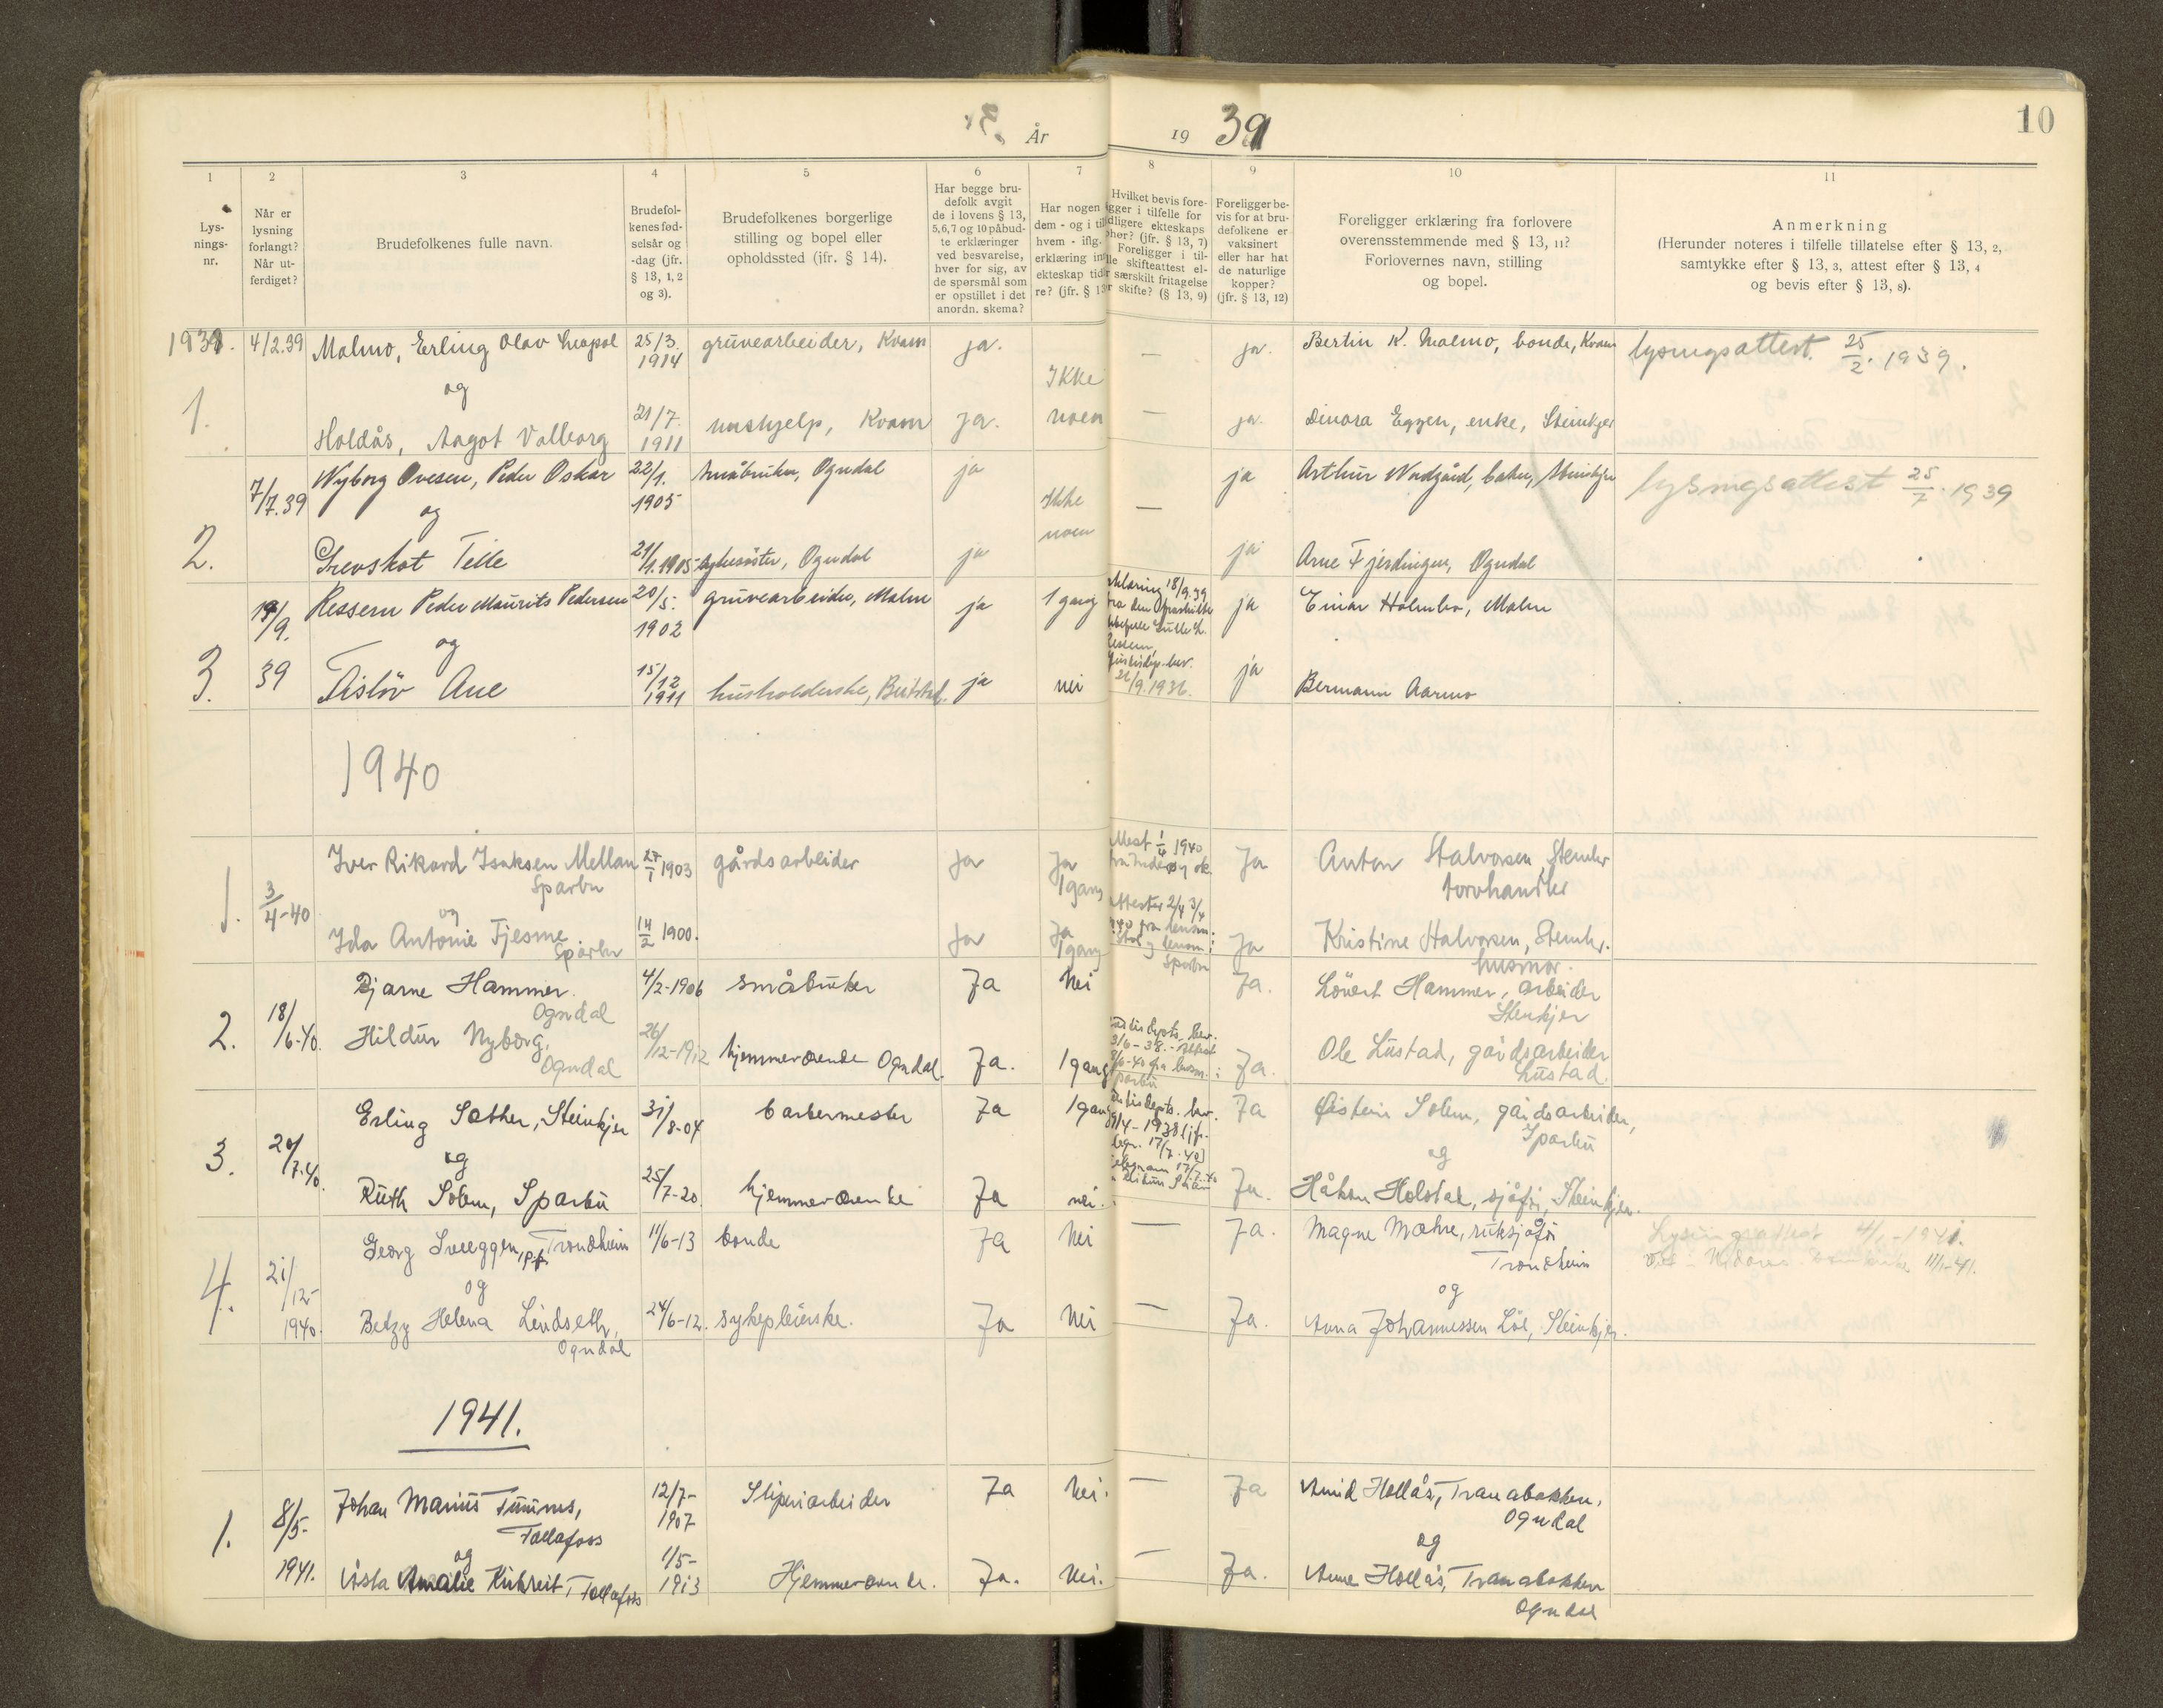 År 19 39
10
1
2
3
4
5
6
7
8
9
10
11
Lys-
nings-
nr.
Når er
lysning
forlangt?
Når ut-
ferdiget?
Brudefolkenes fulle navn.
Brudefol-
kenes fød-
selsår og
-dag (jfr.
§ 13, 1, 2
og 3).
Brudefolkenes borgerlige
stilling og bopel eller
opholdssted (jfr. § 14).
Har begge bru-
defolk avgit
de i lovens § 13,
5,6,7 og 10 påbud-
te erklæringer
ved besvarelse,
hver for sig, av
de spørsmål som
er opstillet i det
anordn. skema?
Har nogen
dem - og i til
hvem - iflg.
erklæring in
ekteskap tid
re? (jfr. § 1
Hvilket bevis fore-
ligger i tilfelle for
tidligere ekteskaps
ophør? (jfr. § 13, 7)
Foreligger i til-
skifteattest el-
særskilt fritagelse
skifte? (§ 13, 9)
Foreligger be-
vis for at bru-
defolkene er
vaksinert
eller har hat
de naturlige
kopper?
(jfr. § 13, 12)
Foreligger erklæring fra forlovere
overensstemmende med § 13, 11?
Forlovernes navn, stilling
og bopel.
Anmerkning
(Herunder noteres i tilfelle tillatelse efter § 13, 2,
samtykke efter § 13, 3, attest efter § 13, 4
og bevis efter § 13, 8).
1939. 4/2.39 Malmo, Erling Olav 25/3. 1914 gruvearbeider, Kvam ja. — ja. Bertin K. Malmo, bonde, Kvam lysingsattest. 25/2. 1939.
og Ikke
1. Holdås, Aagot Valborg 21/7. 1911 hushjelp, Kvam ja. noen — ja. Dinora Eggen, enke, Steinkjer
7/7.39 Nyborg Ovesen, Peder Oskar 22/1. 1905 småbruker, Ogndal ja ja Arthur lysingsattest 25/7. 1939
og Ikke noen —
2. Grevskot Telle 21/1.1905 sykesöster, Ogndal ja ja Arne Fjerdingen, Ogndal
19/9. Ressem Peder Maurits Pedersen 20/5. 1902 gruvearbeider, Malm ja 1 gang 18/9.39 fra den ja Einar Holmbo, Malm
og
3. 39 Aislöv Aue 15/12 1911 husholderske, ja nei 21/9.1936. ja Bermann Aarmo
1940
1. 3/4-40 Iver Rikard Isaksen Mellan 27/1 1903 gårdsarbeider Ja Ja 1 gang 1940 Ja Anton Halvorsen, Stenkr.
Sparbu torvhandler
og
Ida Antonie Fjesme 14/2 1900. Ja Ja 1 gang 2/4 3/4 Ja Kristine Halvorsen, Stenkr.
Sparbu Sparbu husmor.
2. 18/6-40. Bjarne Hammer. 4/2-1906 småbruker Ja Nei Ja. Lövert Hammer, arbeider
Ogndal Stenkjer
Hildur Nyborg, 26/12-1912 hjemmeværende Ogndal. Ja. 1 gang 3/6-38. Ja. Ole Lustad, gårdsarbeider
Ogndal Lustad.
3. 20/7.40. Erling Sæther, Steinkjer 31/8-04 barbermester Ja 1 gang Ja Øistein Solem, gårdsarbeider,
Sparbu
og og
Ruth Solem, Sparbu 25/7-20. hjemmeværende Ja nei. Ja. Håkon Holstad, sjåfør, Steinkjer.
4. 21/12-1940. Georg Sveeggen, Trondheim 11/6-13 bonde Ja Nei — Ja. Magne Mæhre, ruksjåfør Lysingsattest 4/1-1941.
p.t. Trondheim 11/1-41.
og og
Betzy Helena Lindseth, 24/6-12. sykepleierske. Ja Nei — Ja. Anna Johannessen Löe, Steinkjer.
Ogndal
1941.
1. 8/5-1941. Johan Marius 12/7-1907 Sliperiarbeider Ja Nei. — Ja Arvid Hollås, Tranabakken,
Follafoss Ogndal
og og
Asta Amalie 1/5-1913 Hjemmeværende. Ja. Nei. — Ja. Anne Hollås, Tranabakken
Follafoss Ogndal